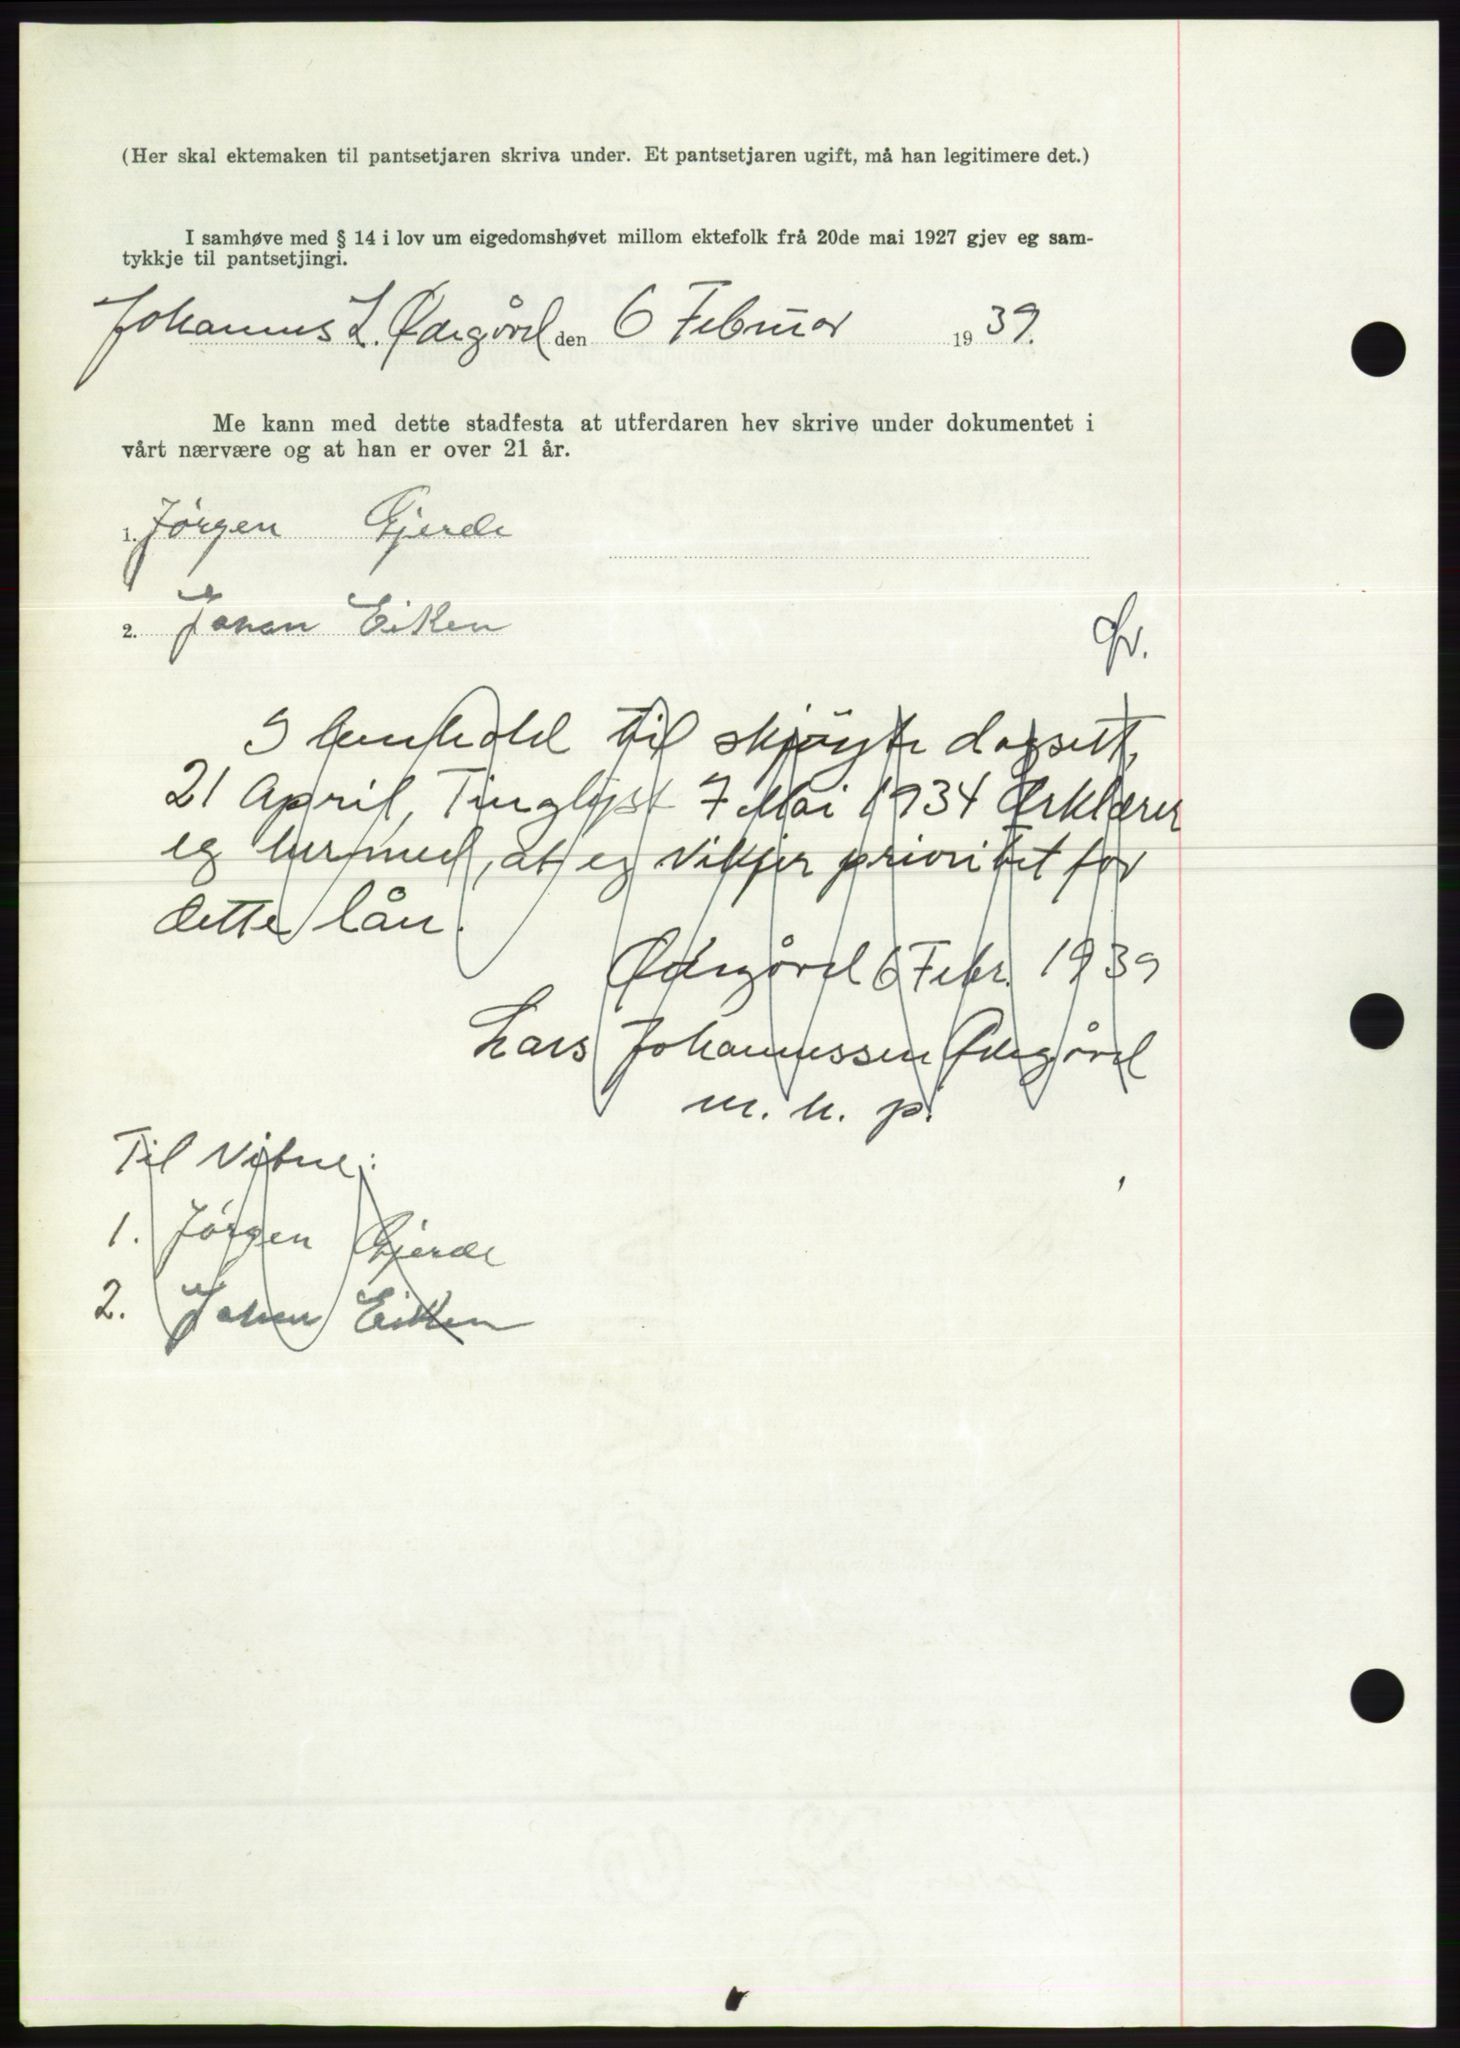 (Her skal ektemaken til pantsetjaren skriva under. Et pantsetjaren ugift, må han legitimere det.)
I samhøve med § 14 i lov um eigedomshøvet millom ektefolk frå 20de mai 1927 gjev eg sam-
tykkje til pantsetjingi.
Johannes L. Ødegård den 6 Februar 1939.
Me kann med dette stadfesta at utferdaren hev skrive under dokumentet i
vårt nærvære og at han er over 21 år.
1. Jörgen Gjerde
2. Johan Eiken
I henhold til skjöyte dagsett,
21 April, Tinglyst 7 Mai 1934 Erklærer
eg hermed, at eg vikjer prioritet for
dette lån.
Ødegård 6 Febr. 1939
Lars Johannessen Ødegård
m. h. p.
Til Vitne:
1. Jörgen Gjerde
2. Johan Eiken